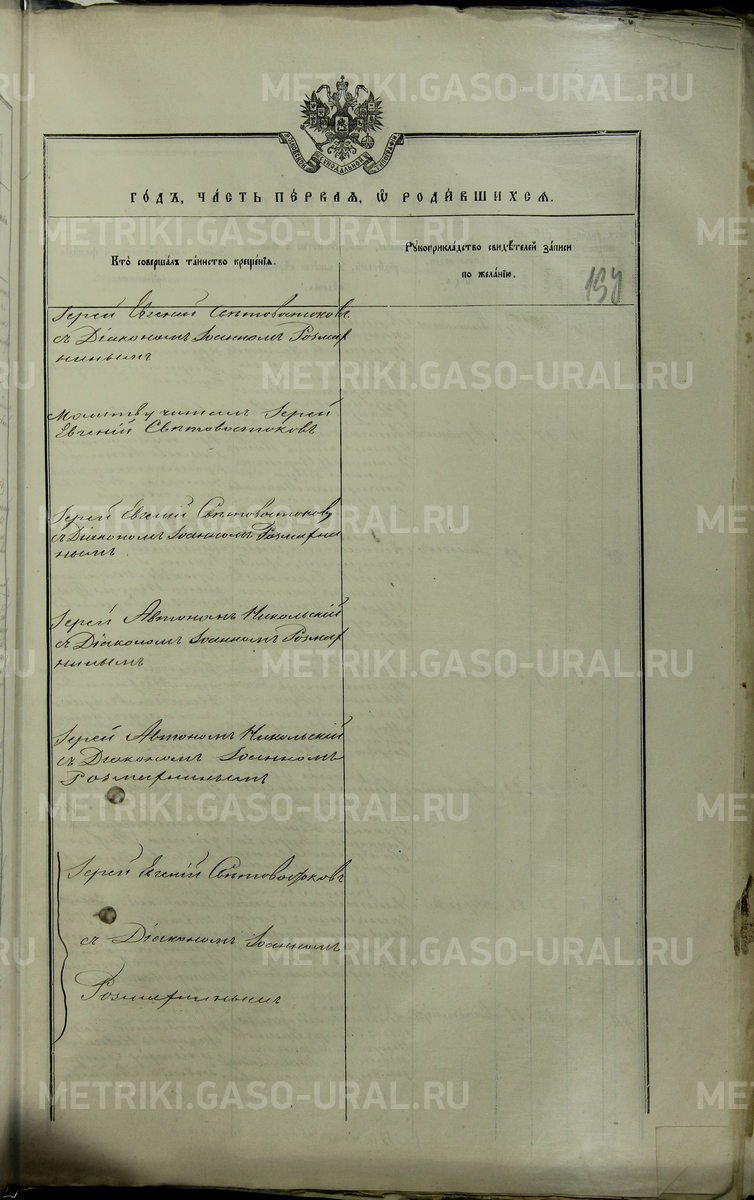 METRIKI.GASO-URAL.RU
СИНОДАЛЬНОЙ
ГО́ДЪ, ЧА́СТЬ ПЕ́РВАѦ, Ѡ҆ РОДИ́ВШИХСѦ.
Кто̀ соверша́лъ та́инство креще́нїѧ.
Рꙋкоприкла́дство свидѣ́телей за́писи
по жела́нїю.
Іерей Евгеній Святовостоковъ
съ Діакономъ Іоанномъ Розмар
нинымъ
Молитву читалъ Іерей
Евгеній Святовостоковъ
Іерей Евгеній Святовостоковъ
съ Діакономъ Іоанномъ
нымъ
Іерей Автономъ Никольскій
съ Діакономъ Іоанномъ
нинымъ
Іерей Автономъ Никольскій
съ Діакономъ Іоанномъ
Іерей Евгеній Святовостоковъ
съ Діакономъ Іоанномъ